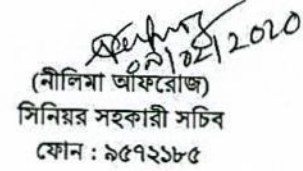 ০৯/০২/2020
(নীলিমা আফরোজ)
সিনিয়র সহকারী সচিব
ফোন : ৯৫৭২১৮৫